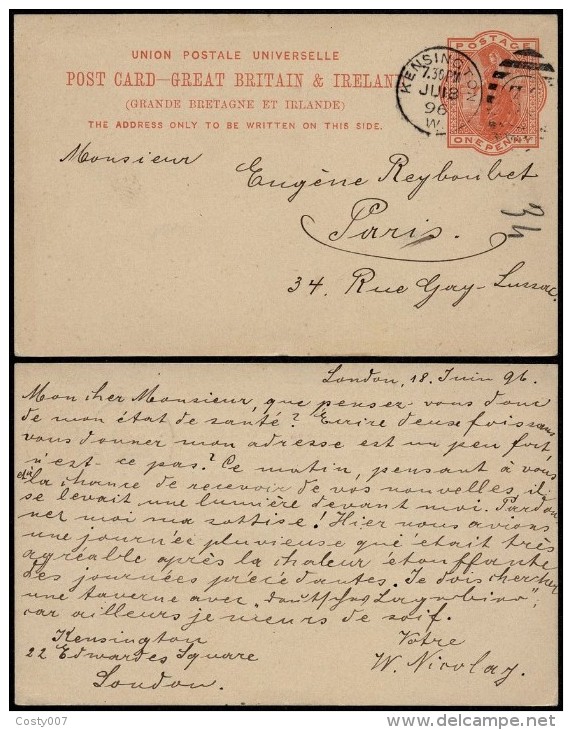 UNION POSTALE UNIVERSELLE
POST CARD—GREAT BRITAIN & IRELAN
(GRANDE BRETAGNE ET IRLANDE)
THE ADDRESS ONLY TO BE WRITTEN ON THIS SIDE.
POSTAGE
ONE PENNY
KENSINGTON
7.30PM
JU18
96
W.
Monsieur
Eugène Reyboubet
Paris.
34. Rue Gay-Lussac.
34
London, 18. Juin 96.
Mon cher Monsieur, que pensez-vous donc
de mon état de santé? Ecrire deux fois sans
vous donner mon adresse est un peu fort
n'est-ce pas? Ce matin, pensant à vous
la chance de recevoir de vos nouvelles, il
se levait une lumière devant moi. Pardon
nez moi ma sottise! Hier nous avions
une journée pluvieuse que était très
agréable après la chaleur étouffante
des journées précédantes. Je dois chercher
une taverne avec "deutsches Lagerbier",
car ailleurs je meurs de soif.
Kensington
22 Edwardes Square
London.
Votre
W. Nicolay.
Costy007
www.delcampe.net